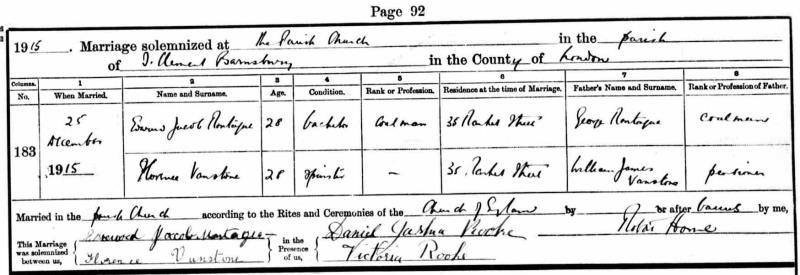 Page 92
1915. Marriage solemnized at the Parish Church in the parish
of S. Clement Barnsbury in the County of London
Columns. 1 2 3 4 5 6 7 8
No. When Married. Name and Surname. Age. Condition. Rank or Profession. Residence at the time of Marriage. Father's Name and Surname. Rank or Profession of Father.
183
25 December 1915
Edward Jacob Montague 28 bachelor Coalman 35 Street George Montague Coalman
Florence Vanstone 28 spinster — 35 Street William James Vanstone pensioner
Married in the parish Church according to the Rites and Ceremonies of the Church of England by or after banns by me,
This Marriage was solemnized between us, Edward Jacob Montague Florence Vanstone in the Presence of us, Daniel Jashua Rooke Victoria Rooke Home